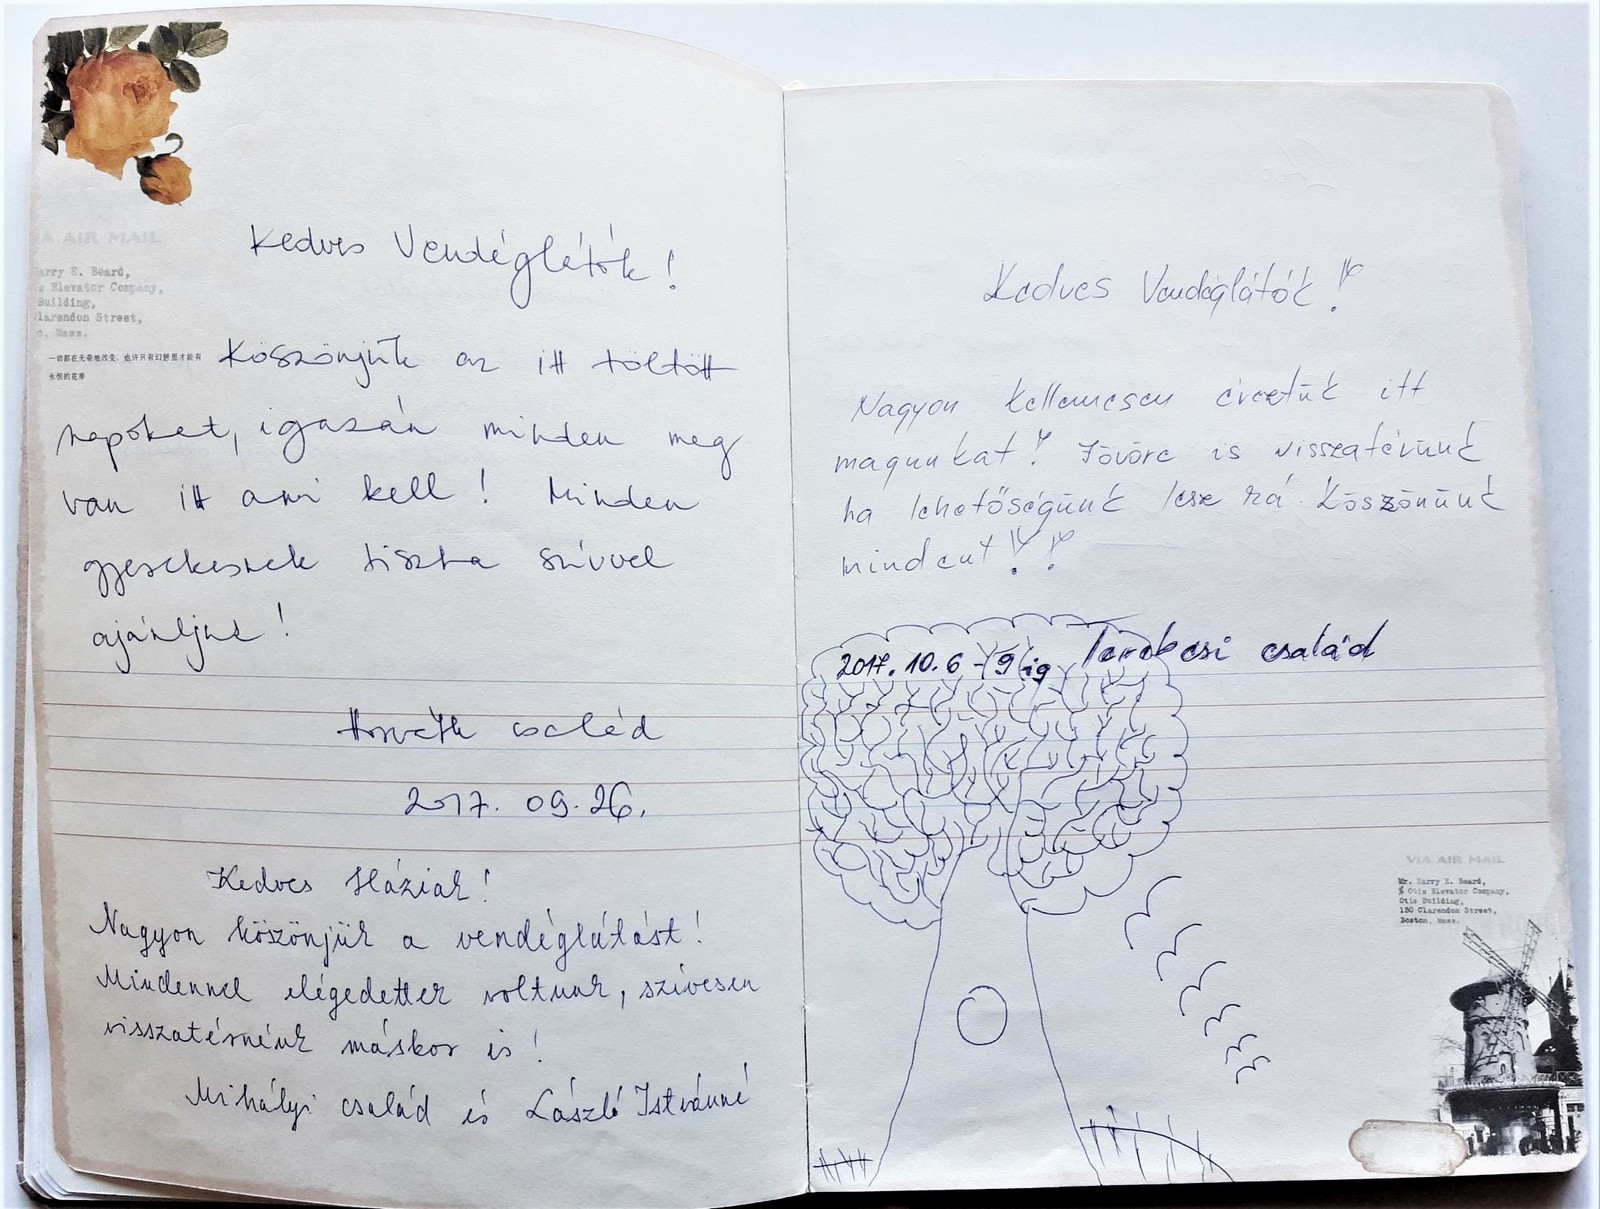 VIA AIR MAIL
arry E. Beard,
s Elevator Company,
Building,
larendon Street,
o, Mass.
一切都在无奈地改变，也许只有幻想里才能有
永恒的花季
Kedves Vendéglátók!
Köszönjük az itt töltött
napokat, igazán minden meg
van itt ami kell! Minden
gyerekesnek tiszta szívvel
ajánljuk!
Horváth család
2017. 09. 26.
Kedves Háziak!
Nagyon köszönjük a vendéglátást!
Mindennel elégedettek voltunk, szívesen
visszatérnénk máskor is!
Mihályi család és László Istvánné
Kedves Vendéglátók!
Nagyon kellemesen éreztük itt
magunkat! Jövőre is visszatérünk
ha lehetőségünk lesz rá. Köszönünk
mindent!!
2017. 10. 6 - 9 ig család
VIA AIR MAIL
Mr. Harry E. Beard,
% Otis Elevator Company,
Otis Building,
130 Clarendon Street,
Boston, Mass.